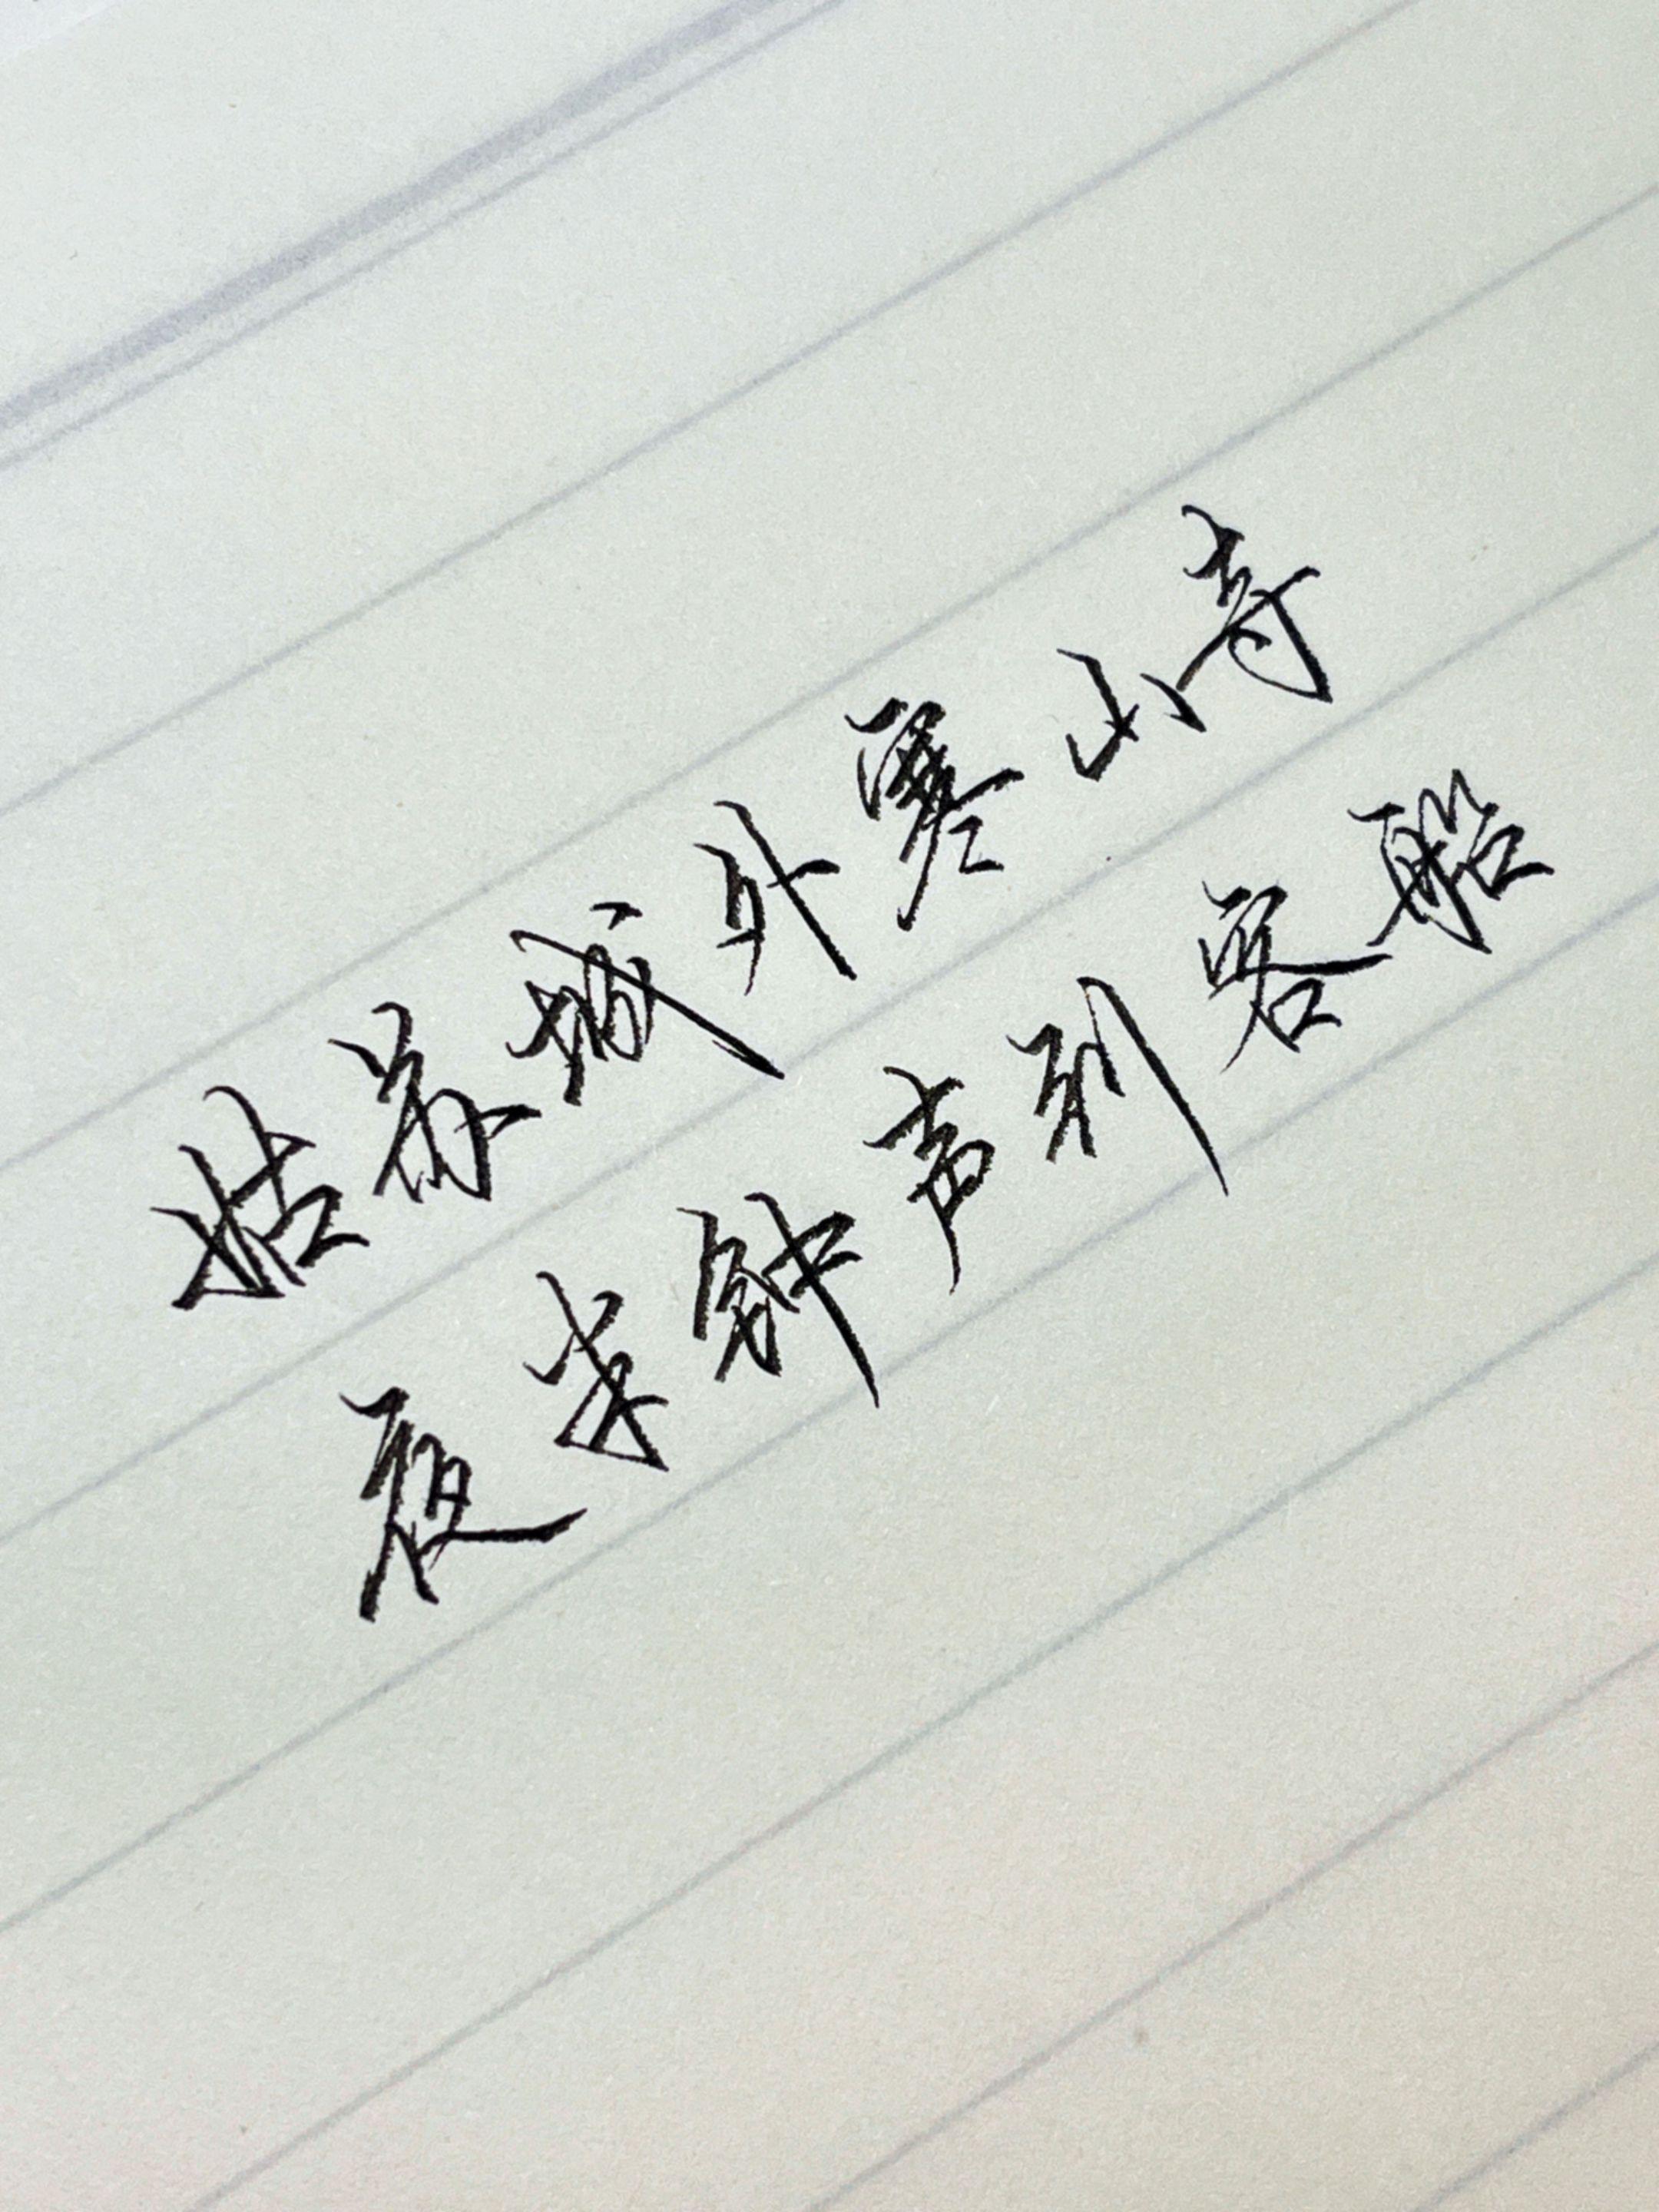 姑苏城外寒山寺
夜半钟声到客船